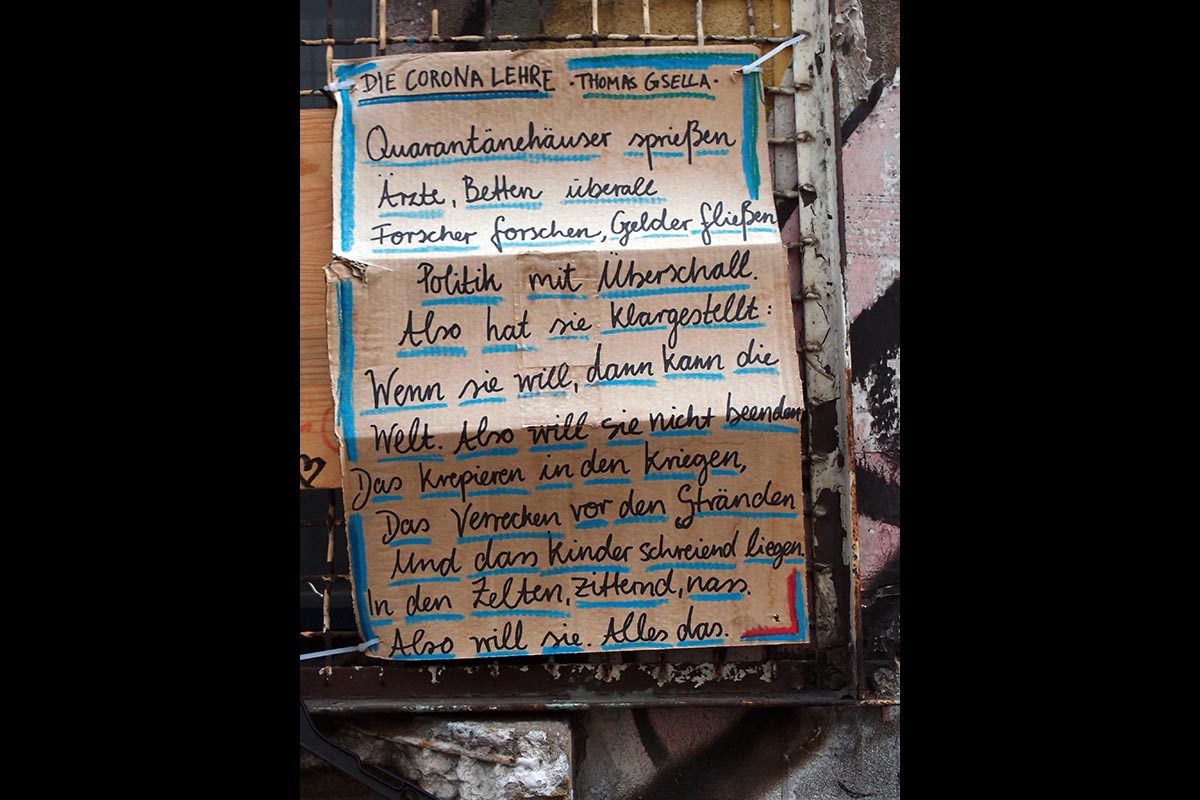 DIE CORONA LEHRE · THOMAS GSELLA ·
Quarantänehäuser sprießen
Ärzte, Betten überall
Forscher forschen, Gelder fließen
Politik mit Überschall.
Also hat sie klargestellt:
Wenn sie will, dann kann die
Welt. Also will sie nicht beenden
Das Krepieren in den Kriegen,
Das Verrecken vor den Stränden
Und dass Kinder schreiend liegen.
In den Zelten, zitternd, nass.
Also will sie. Alles das.